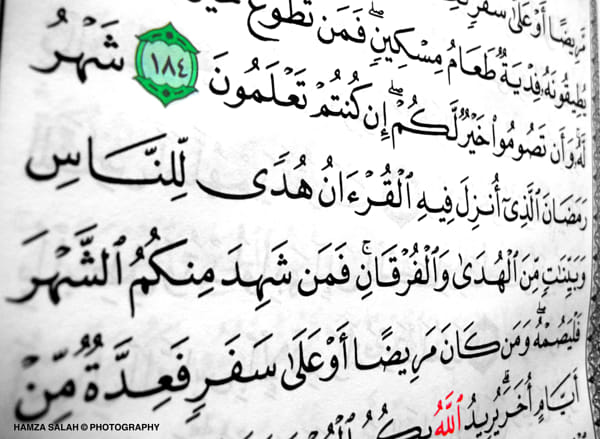 مَّرِيضًا أَوْ عَلَىٰ سَفَرٍ
يُطِيقُونَهُۥ فِدْيَةٌ طَعَامُ مِسْكِينٍ ۖ فَمَن تَطَوَّعَ
لَّهُۥ ۚ وَأَن تَصُومُوا۟ خَيْرٌ لَّكُمْ ۖ إِن كُنتُمْ تَعْلَمُونَ ١٨٤ شَهْرُ
رَمَضَانَ ٱلَّذِىٓ أُنزِلَ فِيهِ ٱلْقُرْءَانُ هُدًى لِّلنَّاسِ
وَبَيِّنَٰتٍ مِّنَ ٱلْهُدَىٰ وَٱلْفُرْقَانِ ۚ فَمَن شَهِدَ مِنكُمُ ٱلشَّهْرَ
فَلْيَصُمْهُ ۖ وَمَن كَانَ مَرِيضًا أَوْ عَلَىٰ سَفَرٍ فَعِدَّةٌ مِّنْ
أَيَّامٍ أُخَرَ ۗ يُرِيدُ ٱللَّهُ بِكُمُ
HAMZA SALAH © PHOTOGRAPHY